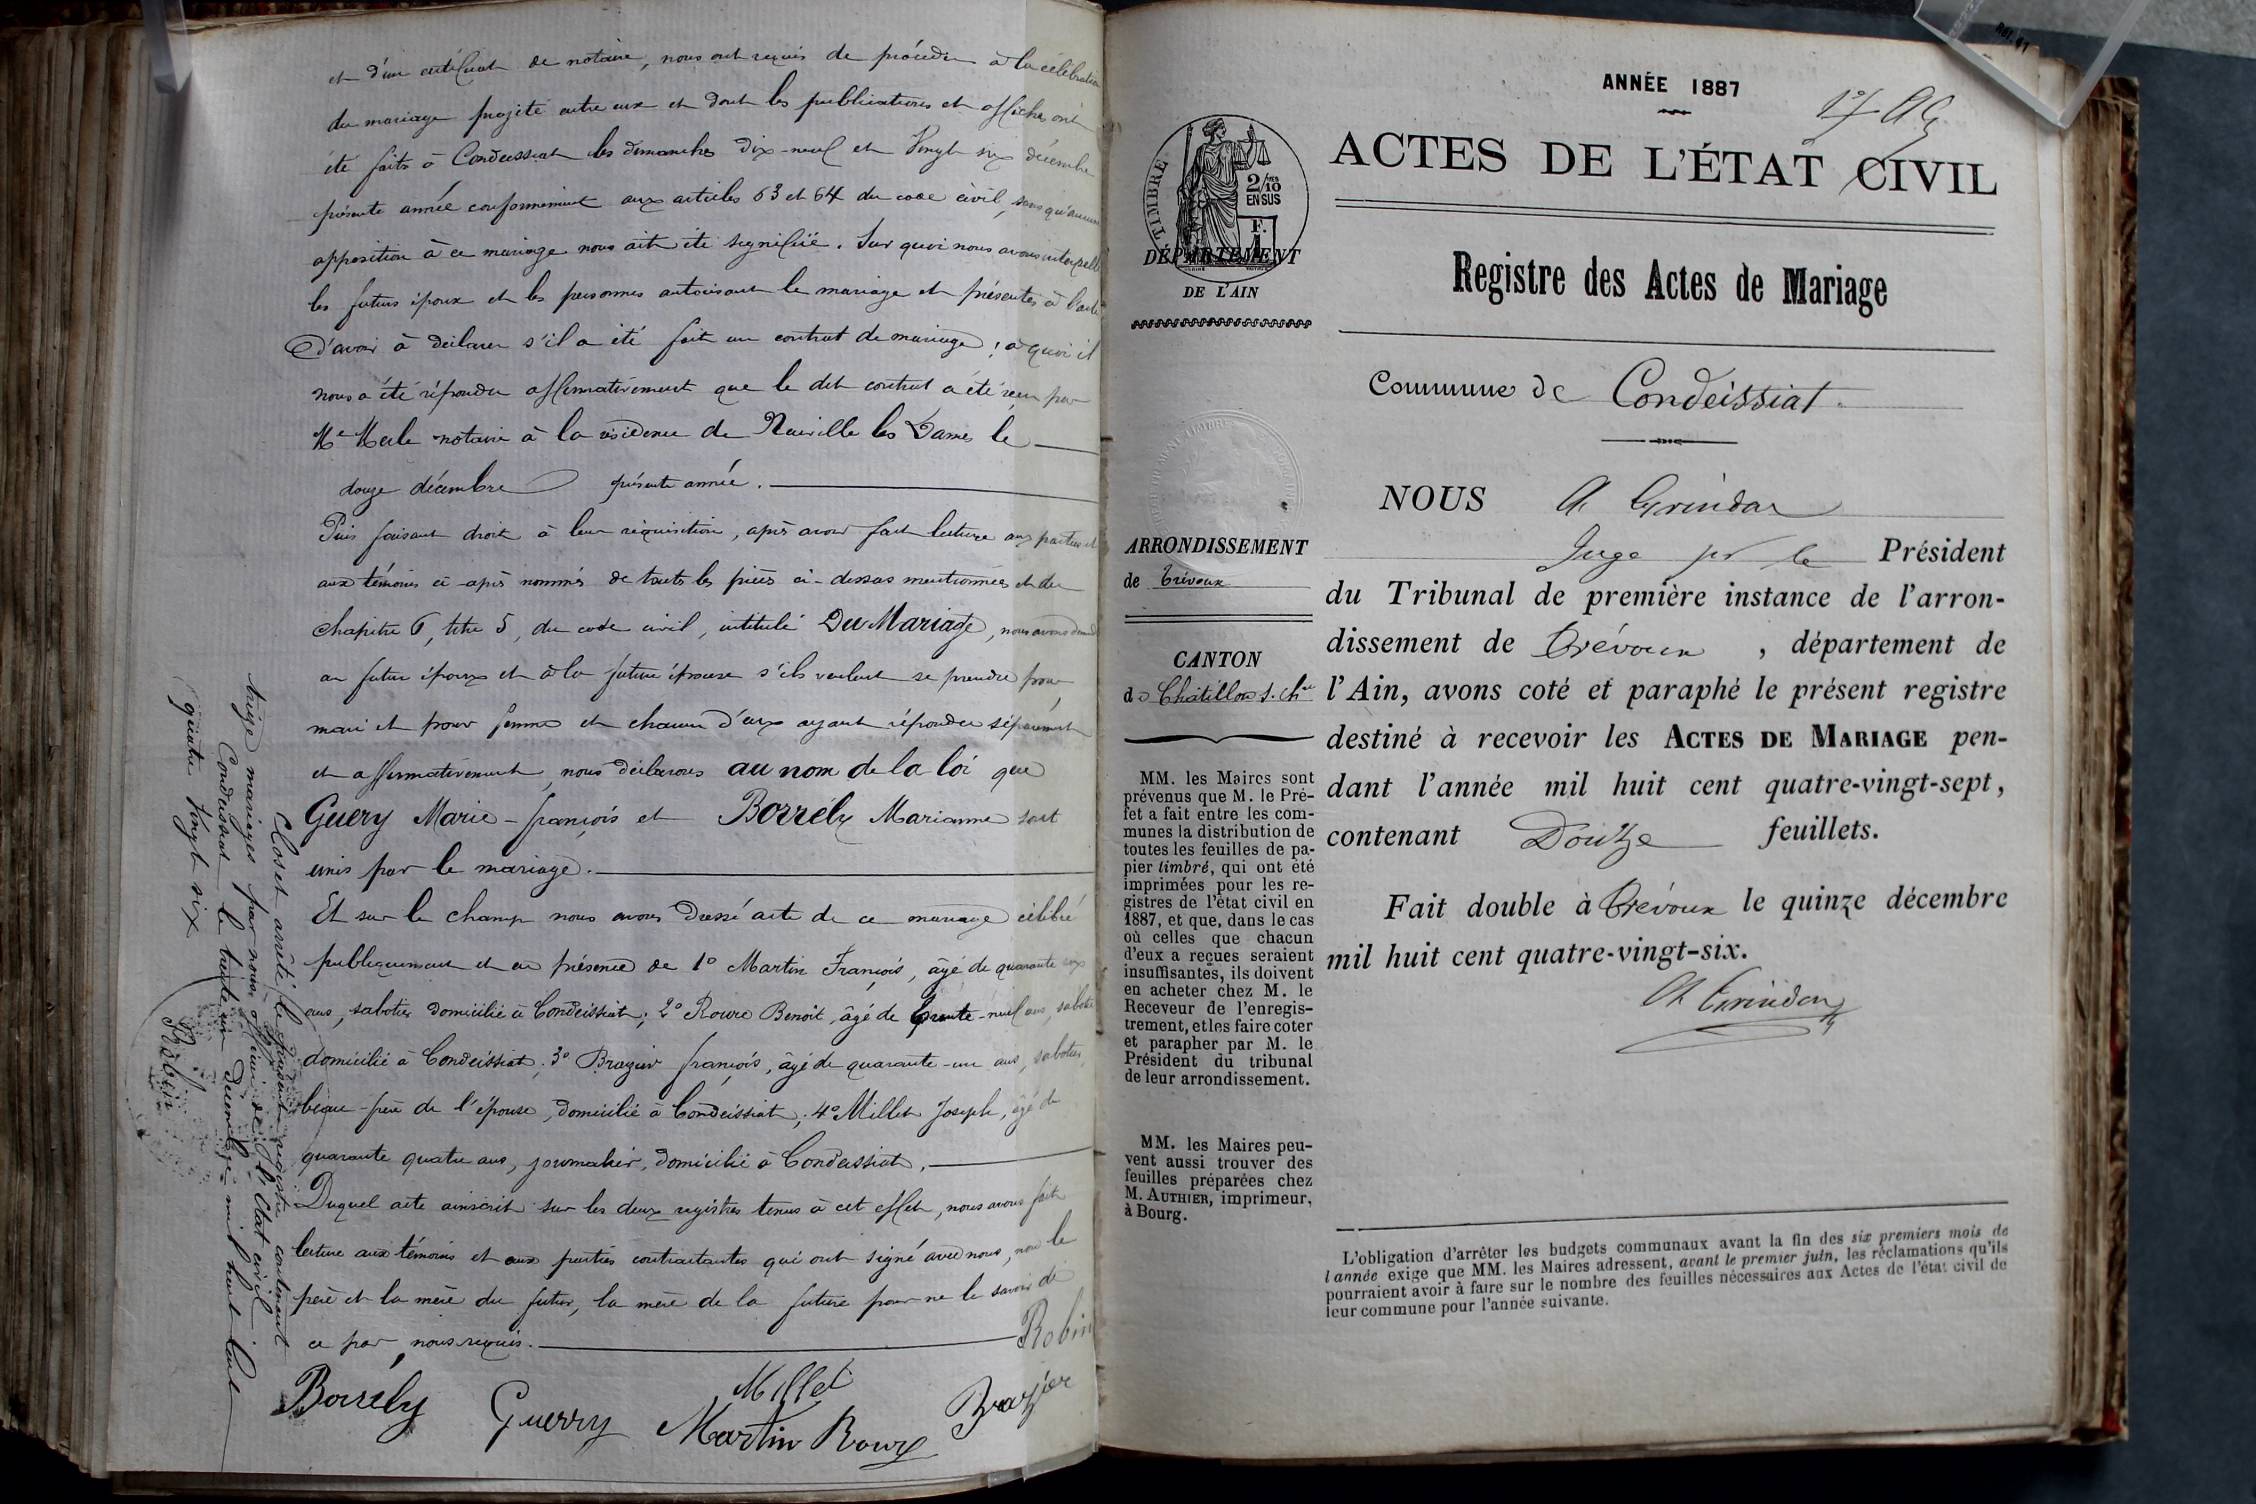 et d'un certificat de notaire, nous ont requis de procéder à la célébration
du mariage projeté entre eux et dont les publications et affiches ont
été faits à Condeissiat les dimanches dix-neuf et Vingt six décembre
présente année conformément aux articles 63 et 64 du code civil, sans qu'aucune
opposition à ce mariage nous ait été signifiée. Sur quoi nous avons interpellé
les futurs époux et les personnes autorisant le mariage et présentes à l'acte
d'avoir à déclarer s'il a été fait un contrat de mariage ; à quoi il
nous a été répondu affirmativement que le dit contrat a été reçu par
Me Merle notaire à la résidence de Neuville les Dames le
douze décembre présente année.
Puis faisant droit à leur réquisition, après avoir fait lecture aux parties et
aux témoins ci-après nommés de touts les pièces ci-dessus mentionnées et du
chapitre 6, titre 5, du code civil, intitulé Du Mariage, nous avons demandé
au futur époux et à la future épouse s'ils veulent se prendre pour
mari et pour femme et chacun d'eux ayant répondu séparément
et affirmativement, nous déclarons au nom de la loi que
Guery Marie-françois et Borrély Marianne sont
unis par le mariage.
Et sur le champ nous avons Dressé acte de ce mariage célébré
publiquement et en présence de 1° Martin François, âgé de quarante six
ans, sabotier domicilié à Condeissiat ; 2° Roure Benoit, âgé de trente-neuf ans, sabotier
domicilié à Condeissiat ; 3° Brazier françois, âgé de quarante-un ans, sabotier,
beau-père de l'épouse, domicilié à Condeissiat ; 4° Millet Joseph, âgé de
quarante quatre ans, journalier, domicilié à Condeissiat,
Duquel acte ainscrit sur les deux registres tenus à cet effet, nous avons fait
lecture aux témoins et aux parties contractantes qui ont signé avec nous, non le
père et la mère du futur, la mère de la future pour ne le savoir de
ce par nous requis. Robin
Borrély Guerry Millet Brazier
Martin Roure
Clos et arrêté le présent registre contenant
treize mariages par nous, officier de l'Etat civil
Condeissiat le trente un décembre mil huit cent
quatre Vingt six
Robin
ANNÉE 1887
ACTES DE L'ÉTAT CIVIL
TIMBRE
2/10 EN SUS
DÉPARTEMENT
DE L'AIN
Registre des Actes de Mariage
Commune de Condeissiat
NOUS A Grindon
Juge pr le Président
du Tribunal de première instance de l'arron-
dissement de Trévoux , département de
l'Ain, avons coté et paraphé le présent registre
destiné à recevoir les ACTES DE MARIAGE pen-
dant l'année mil huit cent quatre-vingt-sept,
contenant Doutze feuillets.
Fait double à Trévoux le quinze décembre
mil huit cent quatre-vingt-six.
A Grindon
ARRONDISSEMENT
de Trévoux
CANTON
de Chatillon s. Ch.ne
MM. les Maires sont
prévenus que M. le Pré-
fet a fait entre les com-
munes la distribution de
toutes les feuilles de pa-
pier timbré, qui ont été
imprimées pour les re-
gistres de l'état civil en
1887, et que, dans le cas
où celles que chacun
d'eux a reçues seraient
insuffisantes, ils doivent
en acheter chez M. le
Receveur de l'enregis-
trement, et les faire coter
et parapher par M. le
Président du tribunal
de leur arrondissement.
MM. les Maires peu-
vent aussi trouver des
feuilles préparées chez
M. AUTHIER, imprimeur,
à Bourg.
L'obligation d'arrêter les budgets communaux avant la fin des six premiers mois de
l'année exige que MM. les Maires adressent, avant le premier juin, les réclamations qu'ils
pourraient avoir à faire sur le nombre des feuilles nécessaires aux Actes de l'état civil de
leur commune pour l'année suivante.